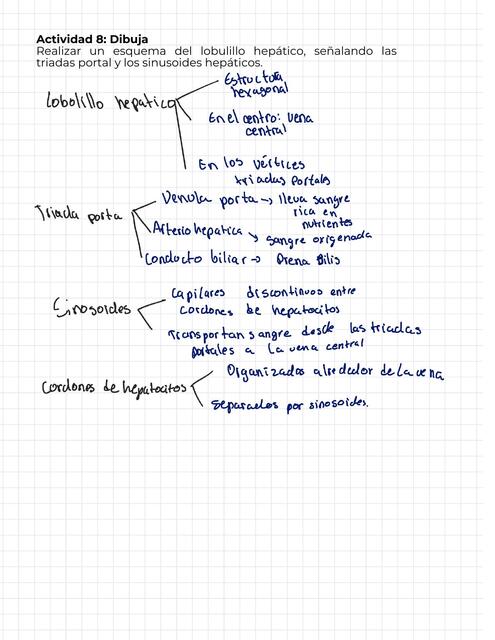 Actividad 8: Dibuja
Realizar un esquema del lobulillo hepático, señalando las
triadas portal y los sinusoides hepáticos.
Lobolillo hepatico
Estructura
hexagonal
En el centro: vena
central
En los vértices
triadas Portales
Triada porta
Venula porta → lleva sangre
rica en
nutrientes
Arteria hepatica → sangre oxigenada
Conducto biliar → Drena Bilis
Sinosoides
Capilares discontinuos entre
cordones de hepatocitos
Transportan sangre desde las triadas
portales a la vena central
Cordones de hepatocitos
Organizados alrededor de la vena
separados por sinosoides.